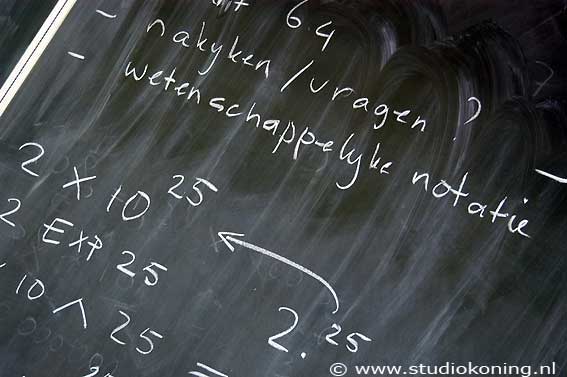 6.4
- nakyken/vragen?
- wetenschappelyke notatie
2 × 10^25
2 EXP 25
10 ^ 25
2.^25
© www.studiokoning.nl